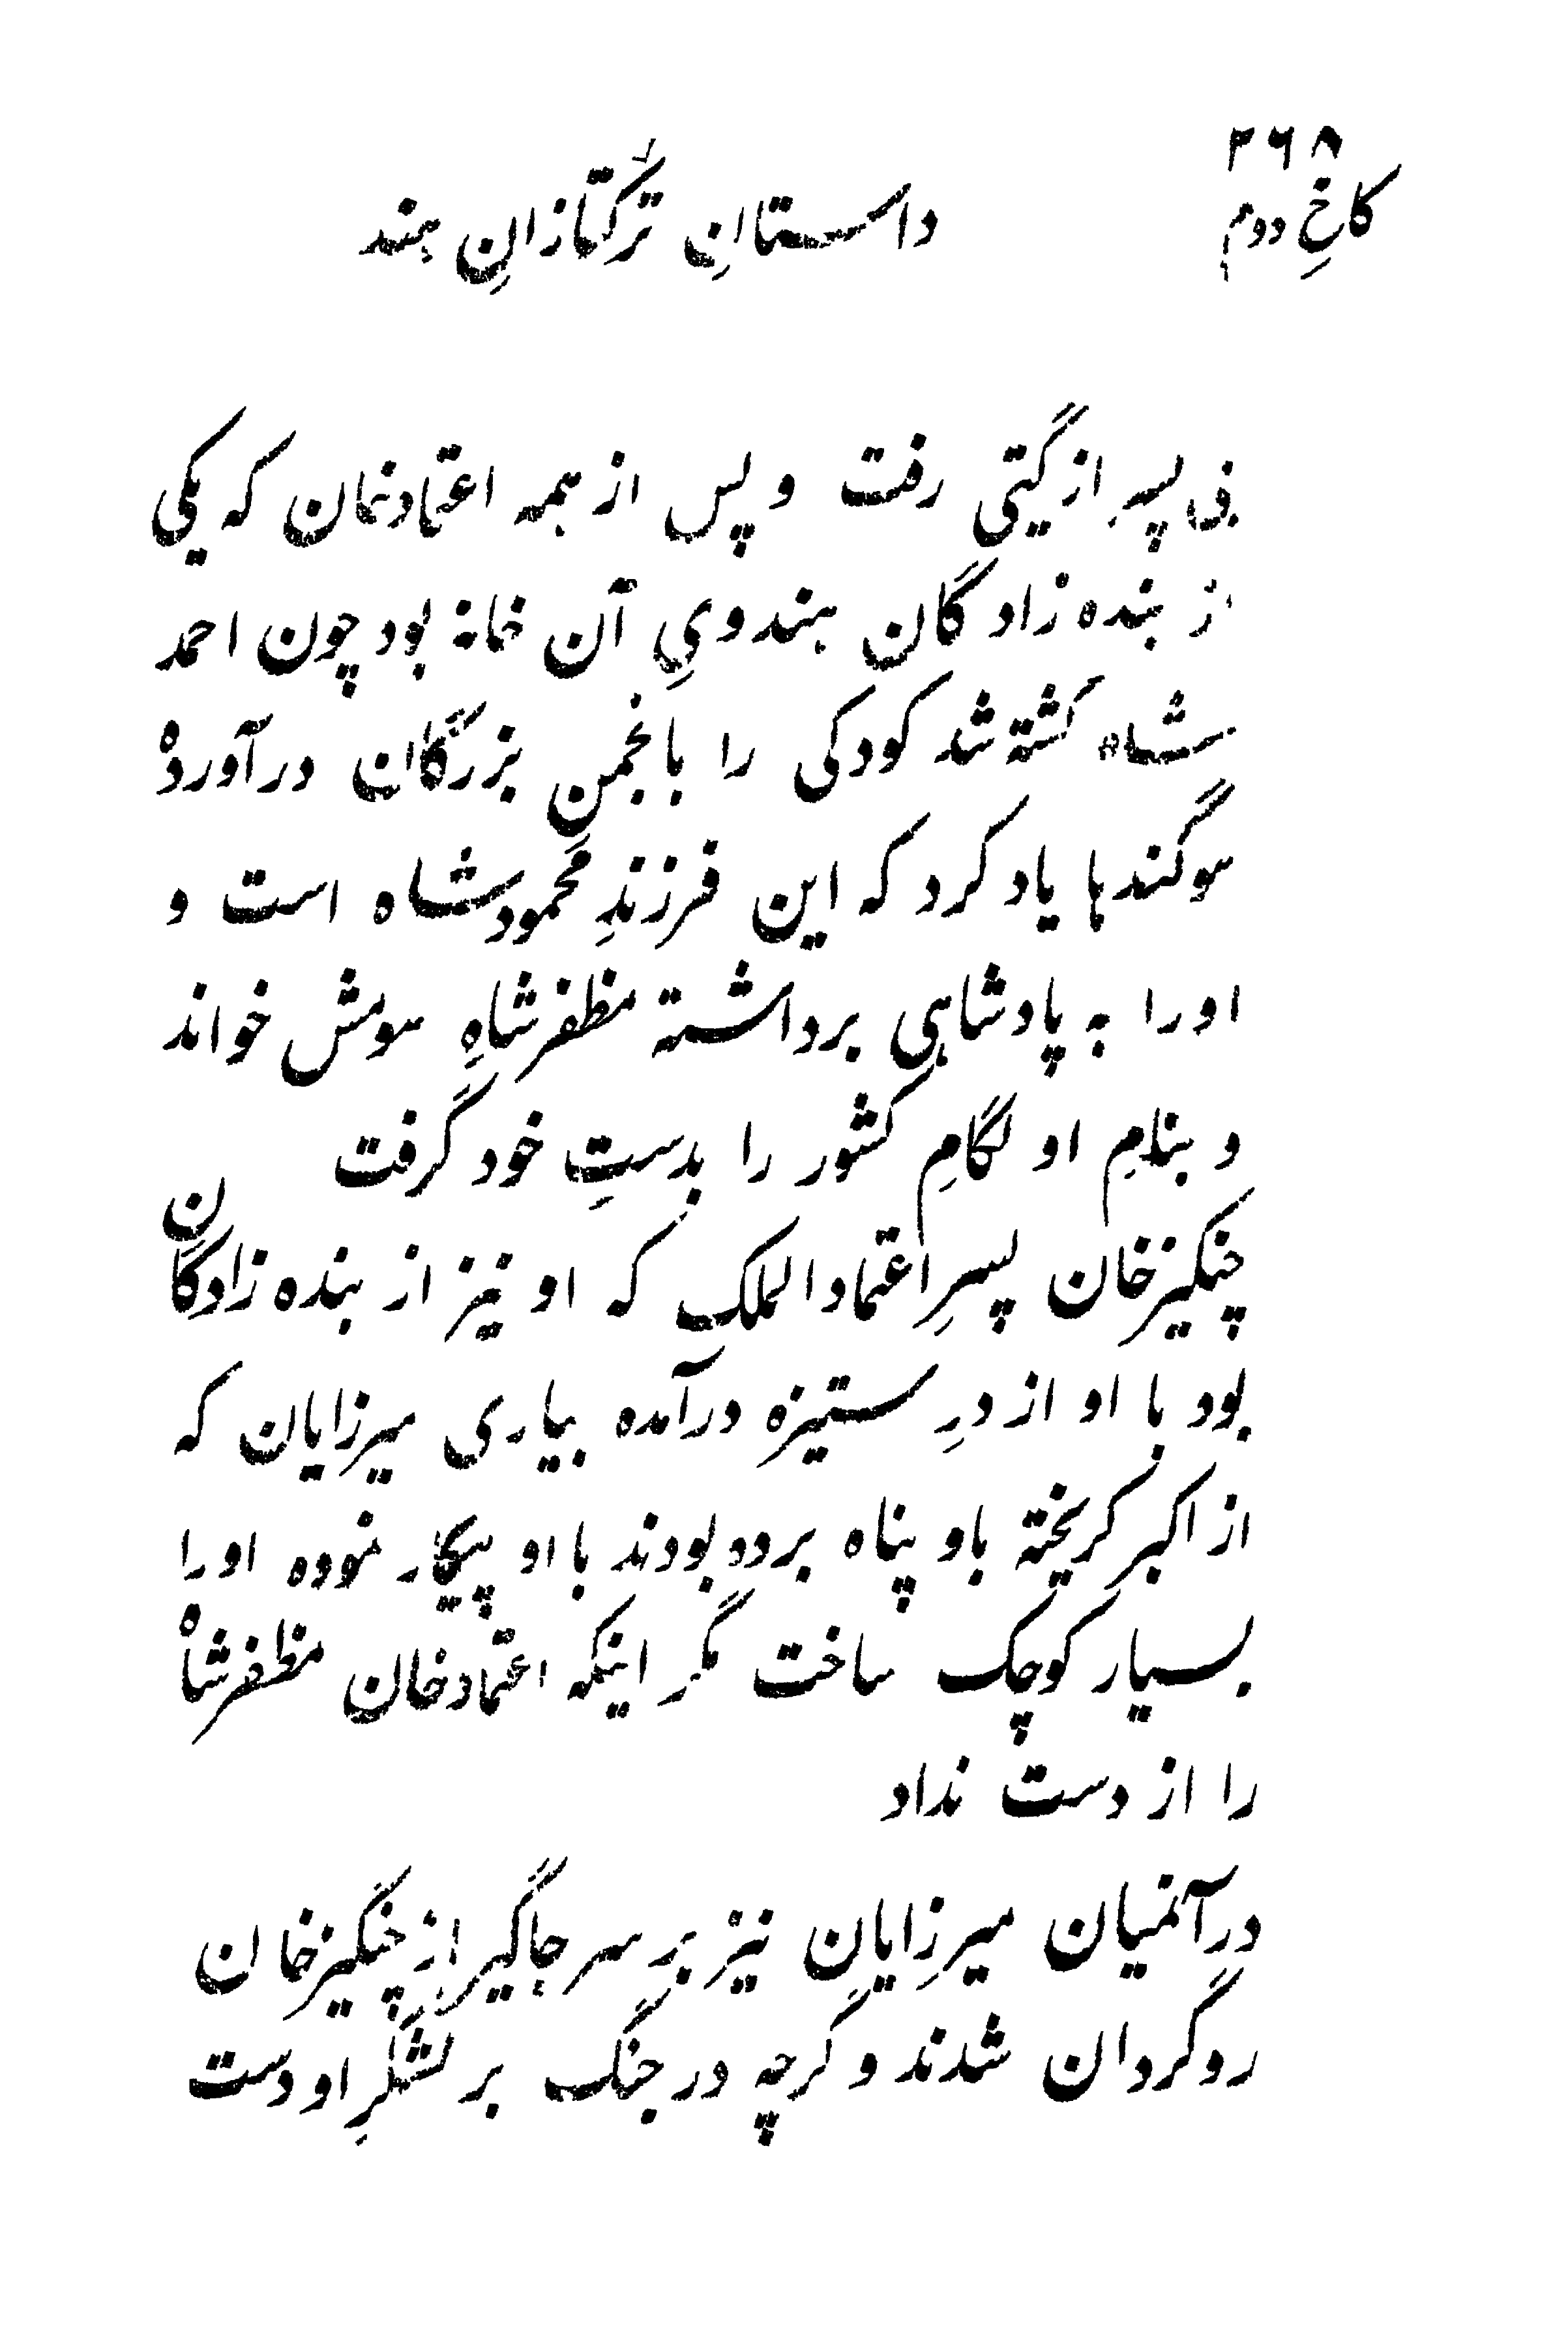 ۲۶۸
کاخِ دوم
داستانِ ترکتازانِ هند
بی پسر از گیتی رفت و پس از همه اعتمادخان که یکی
از بنده زادگان هندویِ آن خانه بود چون احمد
شاه کشته شد کودکی را بانجمنِ بزرگان درآورده
سوگندها یاد کرد که این فرزندِ محمودشاه است و
اورا به پادشاهی برداشته مظفرشاهِ سومش خواند
و بنامِ او لگامِ کشور را بدستِ خود گرفت
چنگیزخان پسرِ اعتمادالملک که او نیز از بنده زادگان
بود با او از درِ ستیزه درآمده بیاری میرزایان که
از اکبر گریخته باو پناه برده بودند با او پیکار نموده اورا
بسیار کوچک ساخت مگر اینکه اعتمادخان مظفرشاه
را از دست نداد
در آنمیان میرزایان نیز بر سر جاگیر از چنگیزخان
روگردان شدند و گرچه در جنگ بر لشگرِ او دست